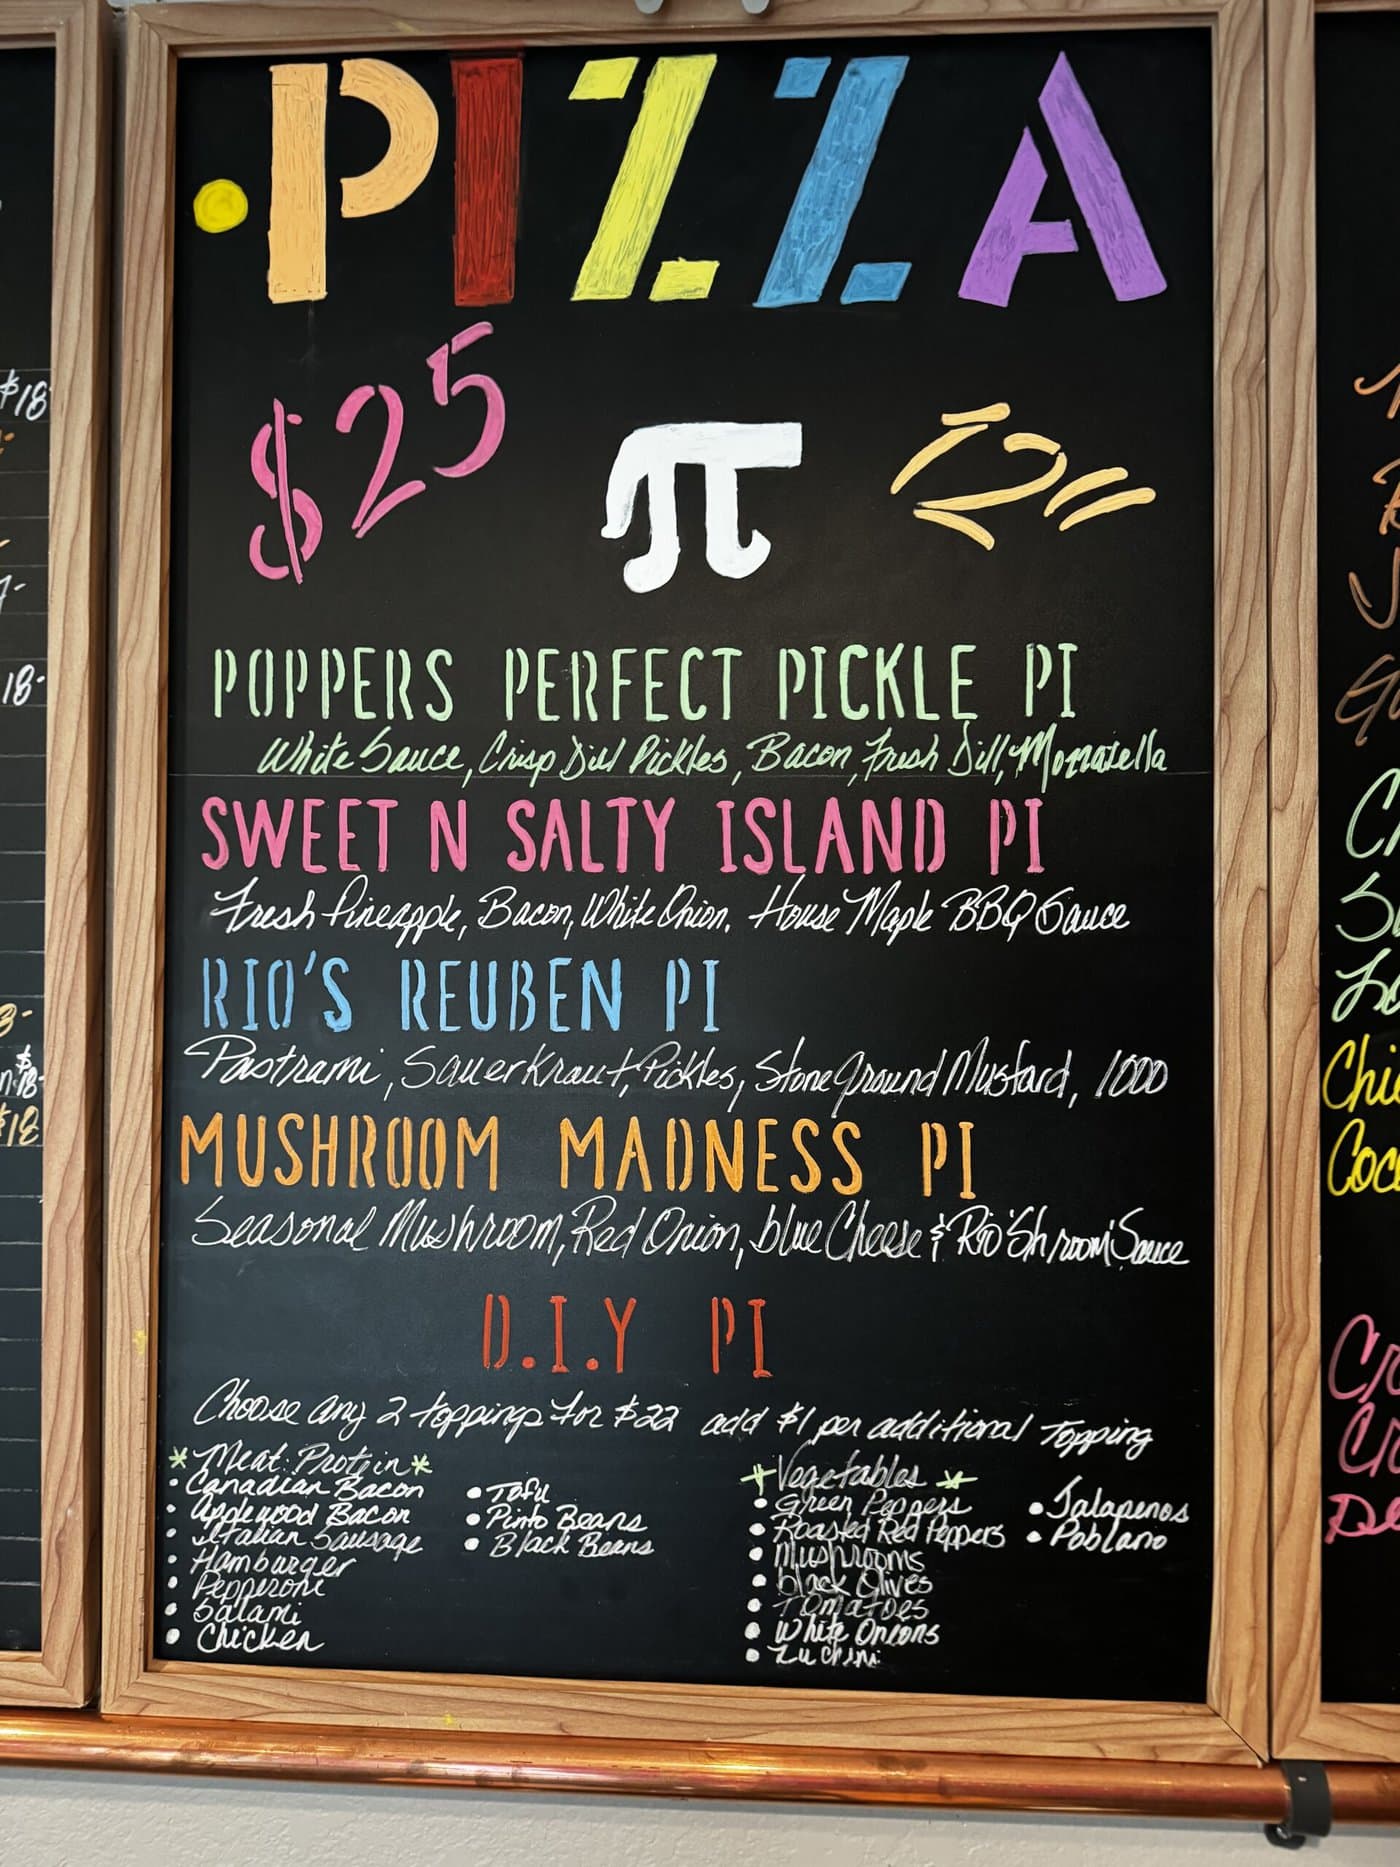 PIZZA
$25 π 12"
POPPERS PERFECT PICKLE PI
White Sauce, Crisp Dill Pickles, Bacon, Fresh Dill, Mozzarella
SWEET N SALTY ISLAND PI
Fresh Pineapple, Bacon, White Onion, House Maple BBQ Sauce
RIO'S REUBEN PI
Pastrami, Sauerkraut, Pickles, Stone Ground Mustard, 1000
MUSHROOM MADNESS PI
Seasonal Mushroom, Red Onion, blue Cheese & Rio 'Shroom' Sauce
D.I.Y PI
Choose any 2 toppings for $22 add $1 per additional topping
*Meat: Protein*
• Canadian Bacon
• Applewood Bacon
• Italian Sausage
• Hamburger
• Pepperoni
• Salami
• Chicken
• Tofu
• Pinto Beans
• Black Beans
*Vegetables*
• Green Peppers
• Roasted Red Peppers
• Mushrooms
• black Olives
• Tomatoes
• White Onions
• Zuchini
• Jalapenos
• Poblano
$18
18-
$18
Chi
Coc